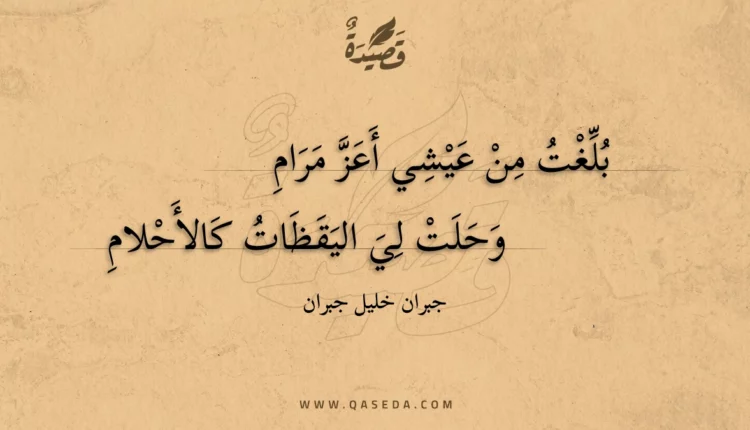 قَصِيدَةٌ
بُلِّغْتُ مِنْ عَيْشِي أَعَزَّ مَرَامِ
وَحَلَتْ لِيَ اليَقَظَاتُ كَالأَحْلامِ
جبران خليل جبران
WWW.QASEDA.COM